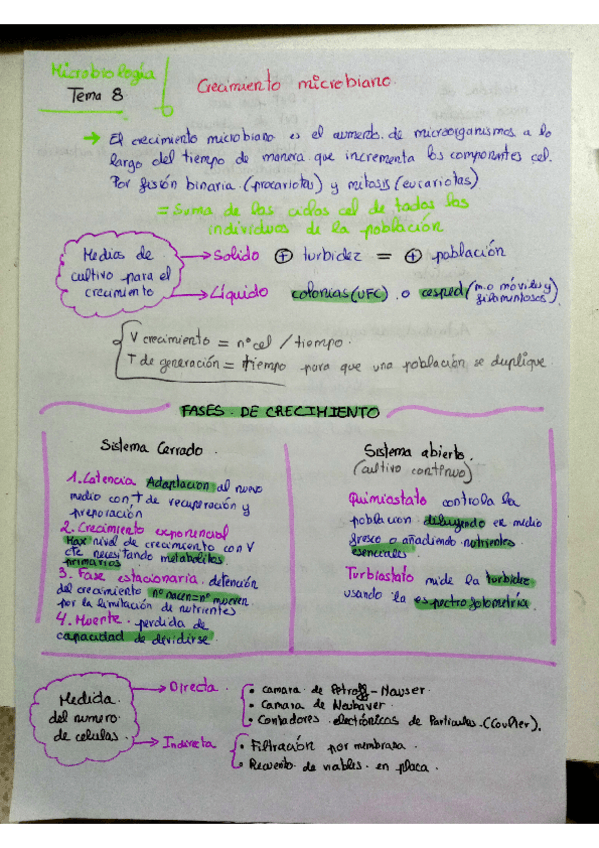 Microbiología
Tema 8
Crecimiento microbiano.
→ El crecimiento microbiano es el aumento de microorganismos a lo
largo del tiempo de manera que incrementa los componentes cel.
Por fisión binaria (procariotas) y mitosis (eucariotas)
= Suma de los ciclos cel de todos los
individuos de la población
Medios de
cultivo para el
crecimiento
→ Solido ⊕ turbidez = ⊕ población
→ Líquido colonias (UFC) o cesped (m.o móviles y
filamentosos).
V crecimiento = nº cel / tiempo.
T de generación = tiempo para que una población se duplique
FASES DE CRECIMIENTO
Sistema Cerrado.
1. Latencia Adaptacion al nuevo
medio con T de recuperación y
preparación
2. Crecimiento exponencial
Max nivel de crecimiento con V
cte necesitando metabolitos
primarios
3. Fase estacionaria. detención
del crecimiento nº nacen = nº mueren
por la limitación de nutrientes
4. Muerte. perdida de
capacidad de dividirse.
Sistema abierto.
(cultivo continuo)
Quimiostato controla la
poblacion diluyendo en medio
fresco o añadiendo nutrientes
esenciales
Turbiostato mide la turbidez
usando la espectrofotometría.
Medida
del numero
de celulas.
→ Directa.
• Camara de Petroff-Hauser.
• Camara de Neubaver.
• Contadores electrónicos de Particulas (Coulter).
→ Indirecta
• Filtración por membrana.
• Recuento de viables en placa.